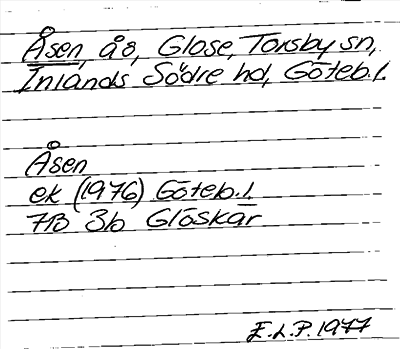 Åsen, ås, Glose, Torsby sn,
Inlands Södre hd, Göteb.l.
Åsen
ek (1976) Göteb.l.
7B 3b Glöskär
E.L.P. 1977